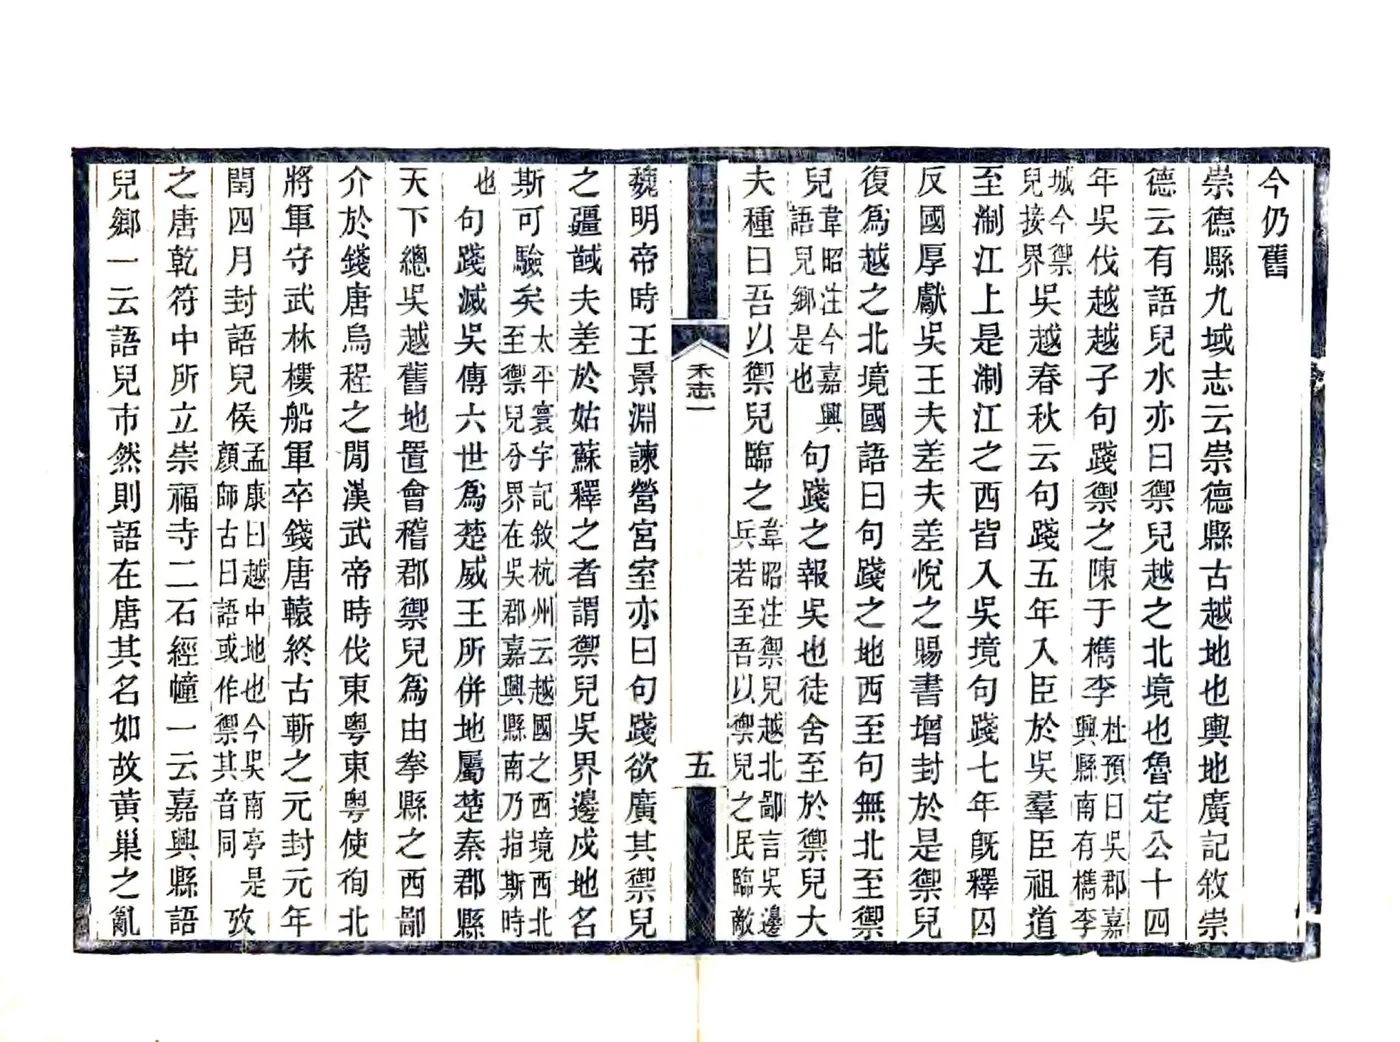 今仍舊
崇德縣九域志云崇德縣古越地也輿地廣記敘崇
德云有語兒水亦曰禦兒越之北境也魯定公十四
年吳伐越越子句踐禦之陳于檇李杜預曰吳郡嘉興縣南有檇李
城今禦兒接界吳越春秋云句踐五年入臣於吳羣臣祖道
至淛江上是淛江之西皆入吳境句踐七年旣釋囚
反國厚獻吳王夫差夫差悅之賜書增封於是禦兒
復爲越之北境國語曰句踐之地西至句無北至禦
兒韋昭注今嘉興語兒鄉是也句踐之報吳也徒舍至於禦兒大
夫種曰吾以禦兒臨之韋昭注禦兒越北鄙言吳邊兵若至吾以禦兒之民臨敵
禾志一
五
魏明帝時王景淵諫營宮室亦曰句踐欲廣其禦兒
之疆馘夫差於姑蘇釋之者謂禦兒吳界邊戍地名
斯可驗矣太平寰宇記敘杭州云越國之西境西北至禦兒分界在吳郡嘉興縣南乃指斯時
也句踐滅吳傳六世爲楚威王所併地屬楚秦郡縣
天下總吳越舊地置會稽郡禦兒爲由拳縣之西鄙
介於錢唐烏程之閒漢武帝時伐東粤東粤使徇北
將軍守武林樓船軍卒錢唐轅終古斬之元封元年
閏四月封語兒侯孟康曰越中地也今吳南亭是顏師古曰語或作禦其音同攷
之唐乾符中所立崇福寺二石經幢一云嘉興縣語
兒鄉一云語兒市然則語在唐其名如故黃巢之亂